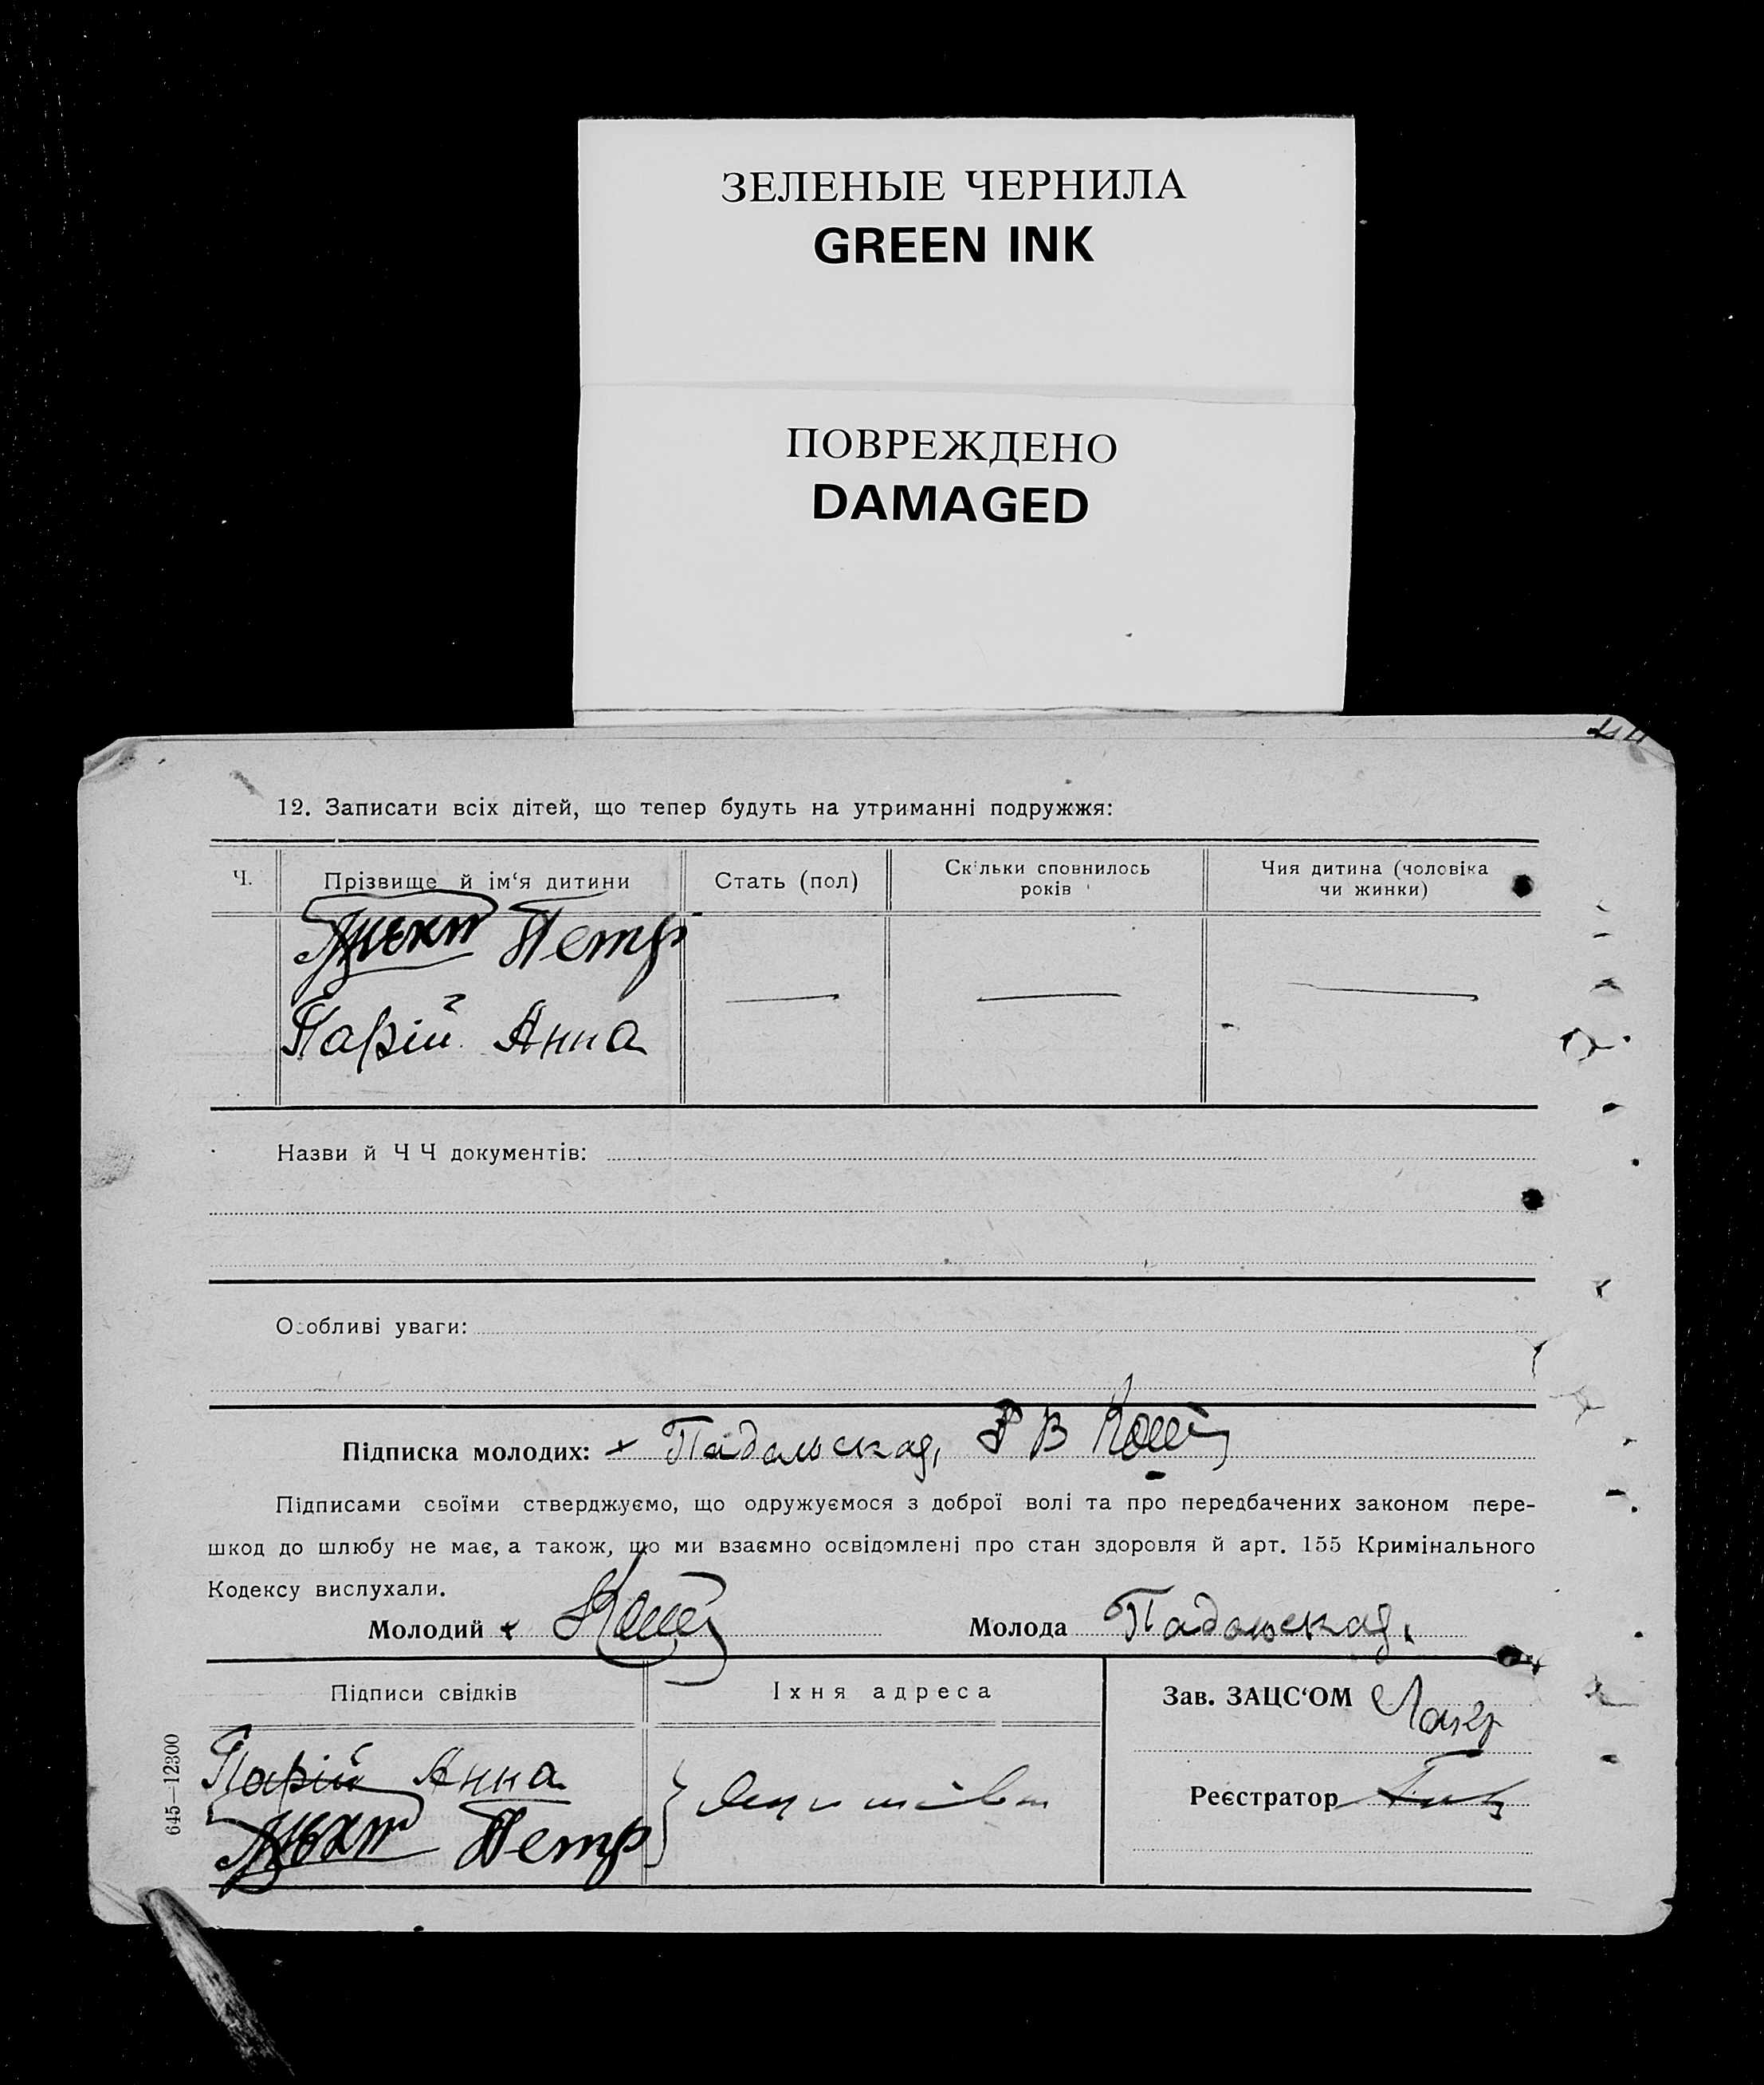 ЗЕЛЕНЫЕ ЧЕРНИЛА
GREEN INK
ПОВРЕЖДЕНО
DAMAGED
12. Записати всіх дітей, що тепер будуть на утриманні подружжя:
Ч. Прізвище й ім‘я дитини Стать (пол) Скільки сповнилось років Чия дитина (чоловіка чи жинки)
Петр
Парій Анна
Назви й Ч Ч документів:
Особливі уваги:
Підписка молодих: Падальская, В
Підписами своїми стверджуємо, що одружуємося з доброї волі та про передбачених законом пере-
шкод до шлюбу не має, а також, що ми взаємно освідомлені про стан здоровля й арт. 155 Кримінального
Кодексу вислухали.
Молодий Молода Падальская
Підписи свідків Їхня адреса Зав. ЗАЦС‘ОМ
Парій Анна
Петр
Реєстратор
645—12300